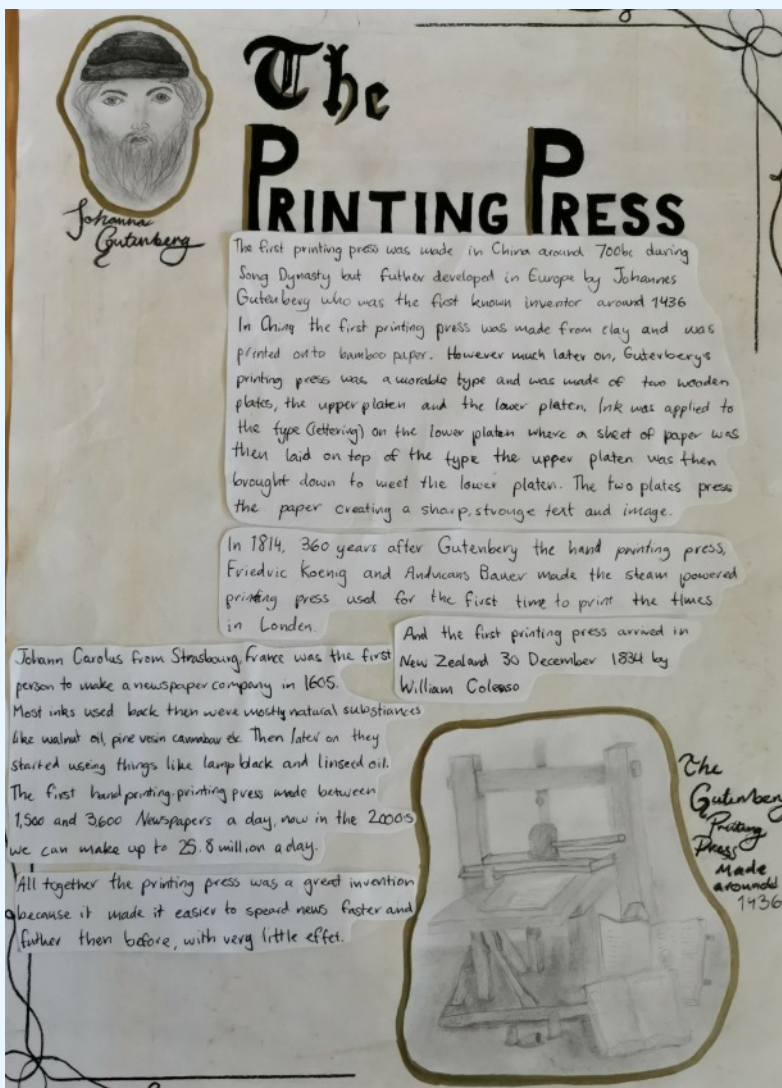 The
PRINTING PRESS
Johanna
Gutenberg
The first printing press was made in China around 700bc during
Song Dynasty but futher developed in Europe by Johannes
Gutenberg who was the first known inventor around 1436
In China the first printing press was made from clay and was
printed onto bamboo paper. However much later on, Gutenbergs
printing press was a morable type and was made of two wooden
plates, the upper platen and the lower platen. Ink was applied to
the type (lettering) on the lower platen where a sheet of paper was
then laid on top of the type the upper platen was then
brought down to meet the lower platen. The two plates press
the paper creating a sharp, strounge text and image.
In 1814, 360 years after Gutenberg the hand printing press,
Friedric Koenig and Anducans Bauer made the steam powered
printing press used for the first time to print the times
in Londen.
And the first printing press arrived in
New Zealand 30 December 1834 by
William Colenso
Johann Carolus from Strasbourg, France was the first
person to make a newspaper company in 1605.
Most inks used back then were mostly natural substiances
like walnut oil, pine resin cannabar etc. Then later on they
started useing things like lamp black and linseed oil.
The first handprinting-printing press made between
1,500 and 3,600 Newspapers a day, now in the 2000s
we can make up to 25.8 million a day.
All together the printing press was a great invention
because it made it easier to speard news faster and
futher then before, with very little effet.
The
Gutenberg
Printing
Press
Made
around
1436